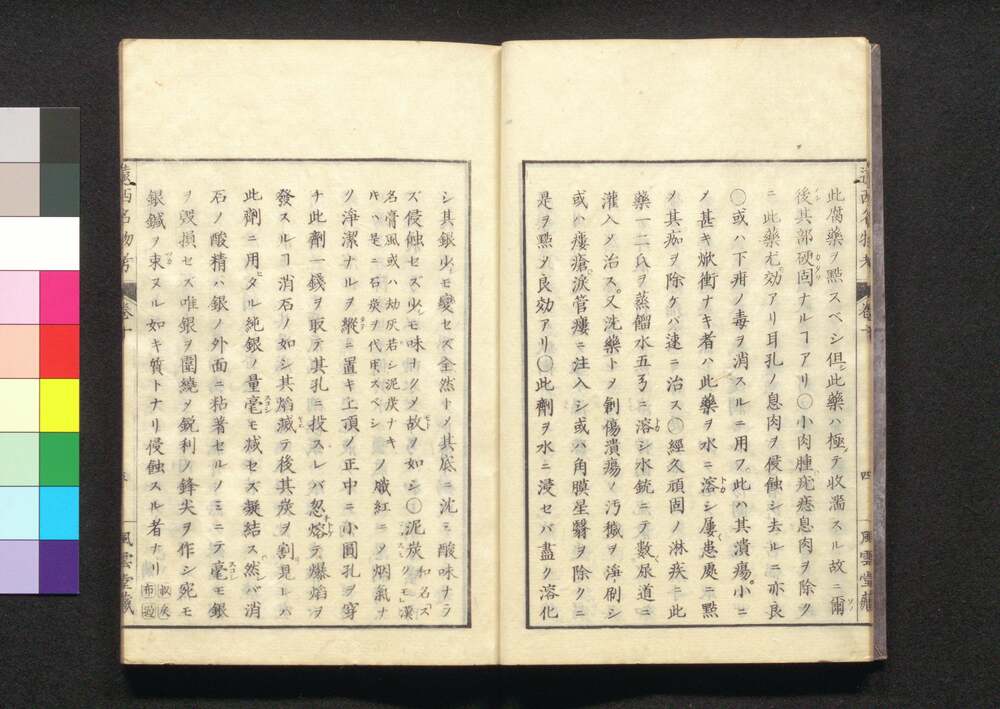 此腐藥ヲ點スベシ但シ此藥ハ極テ收濇スル故ニ爾
後其部硬固ナルヿアリ〇小肉腫疣痣息肉ヲ除ク
ニ此藥尤効アリ耳孔ノ息肉ヲ侵蝕シ去ルニ亦良
〇或ハ下疳ノ毒ヲ消スルニ用フ此ハ其潰瘍小ニ
メ甚キ焮衝ナキ者ハ此藥ヲ水ニ溶シ屢患處ニ點
メ其痂ヲ除ケバ速ニ治ス〇經久頑固ノ淋疾ニ此
藥一二氏ヲ蒸餾水五弓ニ溶シ水銃ニテ數尿道ニ
灌入メ治ス又洗藥トメ創傷潰瘍ノ汚穢ヲ淨刷シ
或ハ瘻瘡淚管瘻ニ注入シ或ハ角膜星翳ヲ除クニ
是ヲ點メ良効アリ〇此劑ヲ水ニ浸セバ盡ク溶化
四
風雲堂藏
シ其銀少モ變セズ全然トメ其底ニ沈ミ酸味ナラ
ズ侵蝕セズ少モ味ナクメ故ノ如シ〇泥炭和名スクモ漢
名膏風或ハ劫灰若シ泥炭ナキ
片ハ是ニ石炭ヲ代用スベシノ熾紅ニメ烟氣ナ
ク淨潔ナルヲ縱ニ置キ上頂ノ正中ニ小圓孔ヲ穿
チ此劑一錢ヲ取テ其孔ニ投スレバ忽熔テ爆焰ヲ
發スルヿ消石ノ如シ其焰滅テ後其炭ヲ割見レバ
此劑ニ用タル純銀ノ量毫モ减セズ凝結ス然バ消
石ノ酸精ハ銀ノ外面ニ粘著セルノミニテ毫モ銀
ヲ毀損セズ唯銀ヲ圍繞メ銳利ノ鋒尖ヲ作シ宛モ
銀鍼ヲ束ヌル如キ質トナリ侵蝕スル者ナリ
遠西名物考
卷十
風雲堂藏